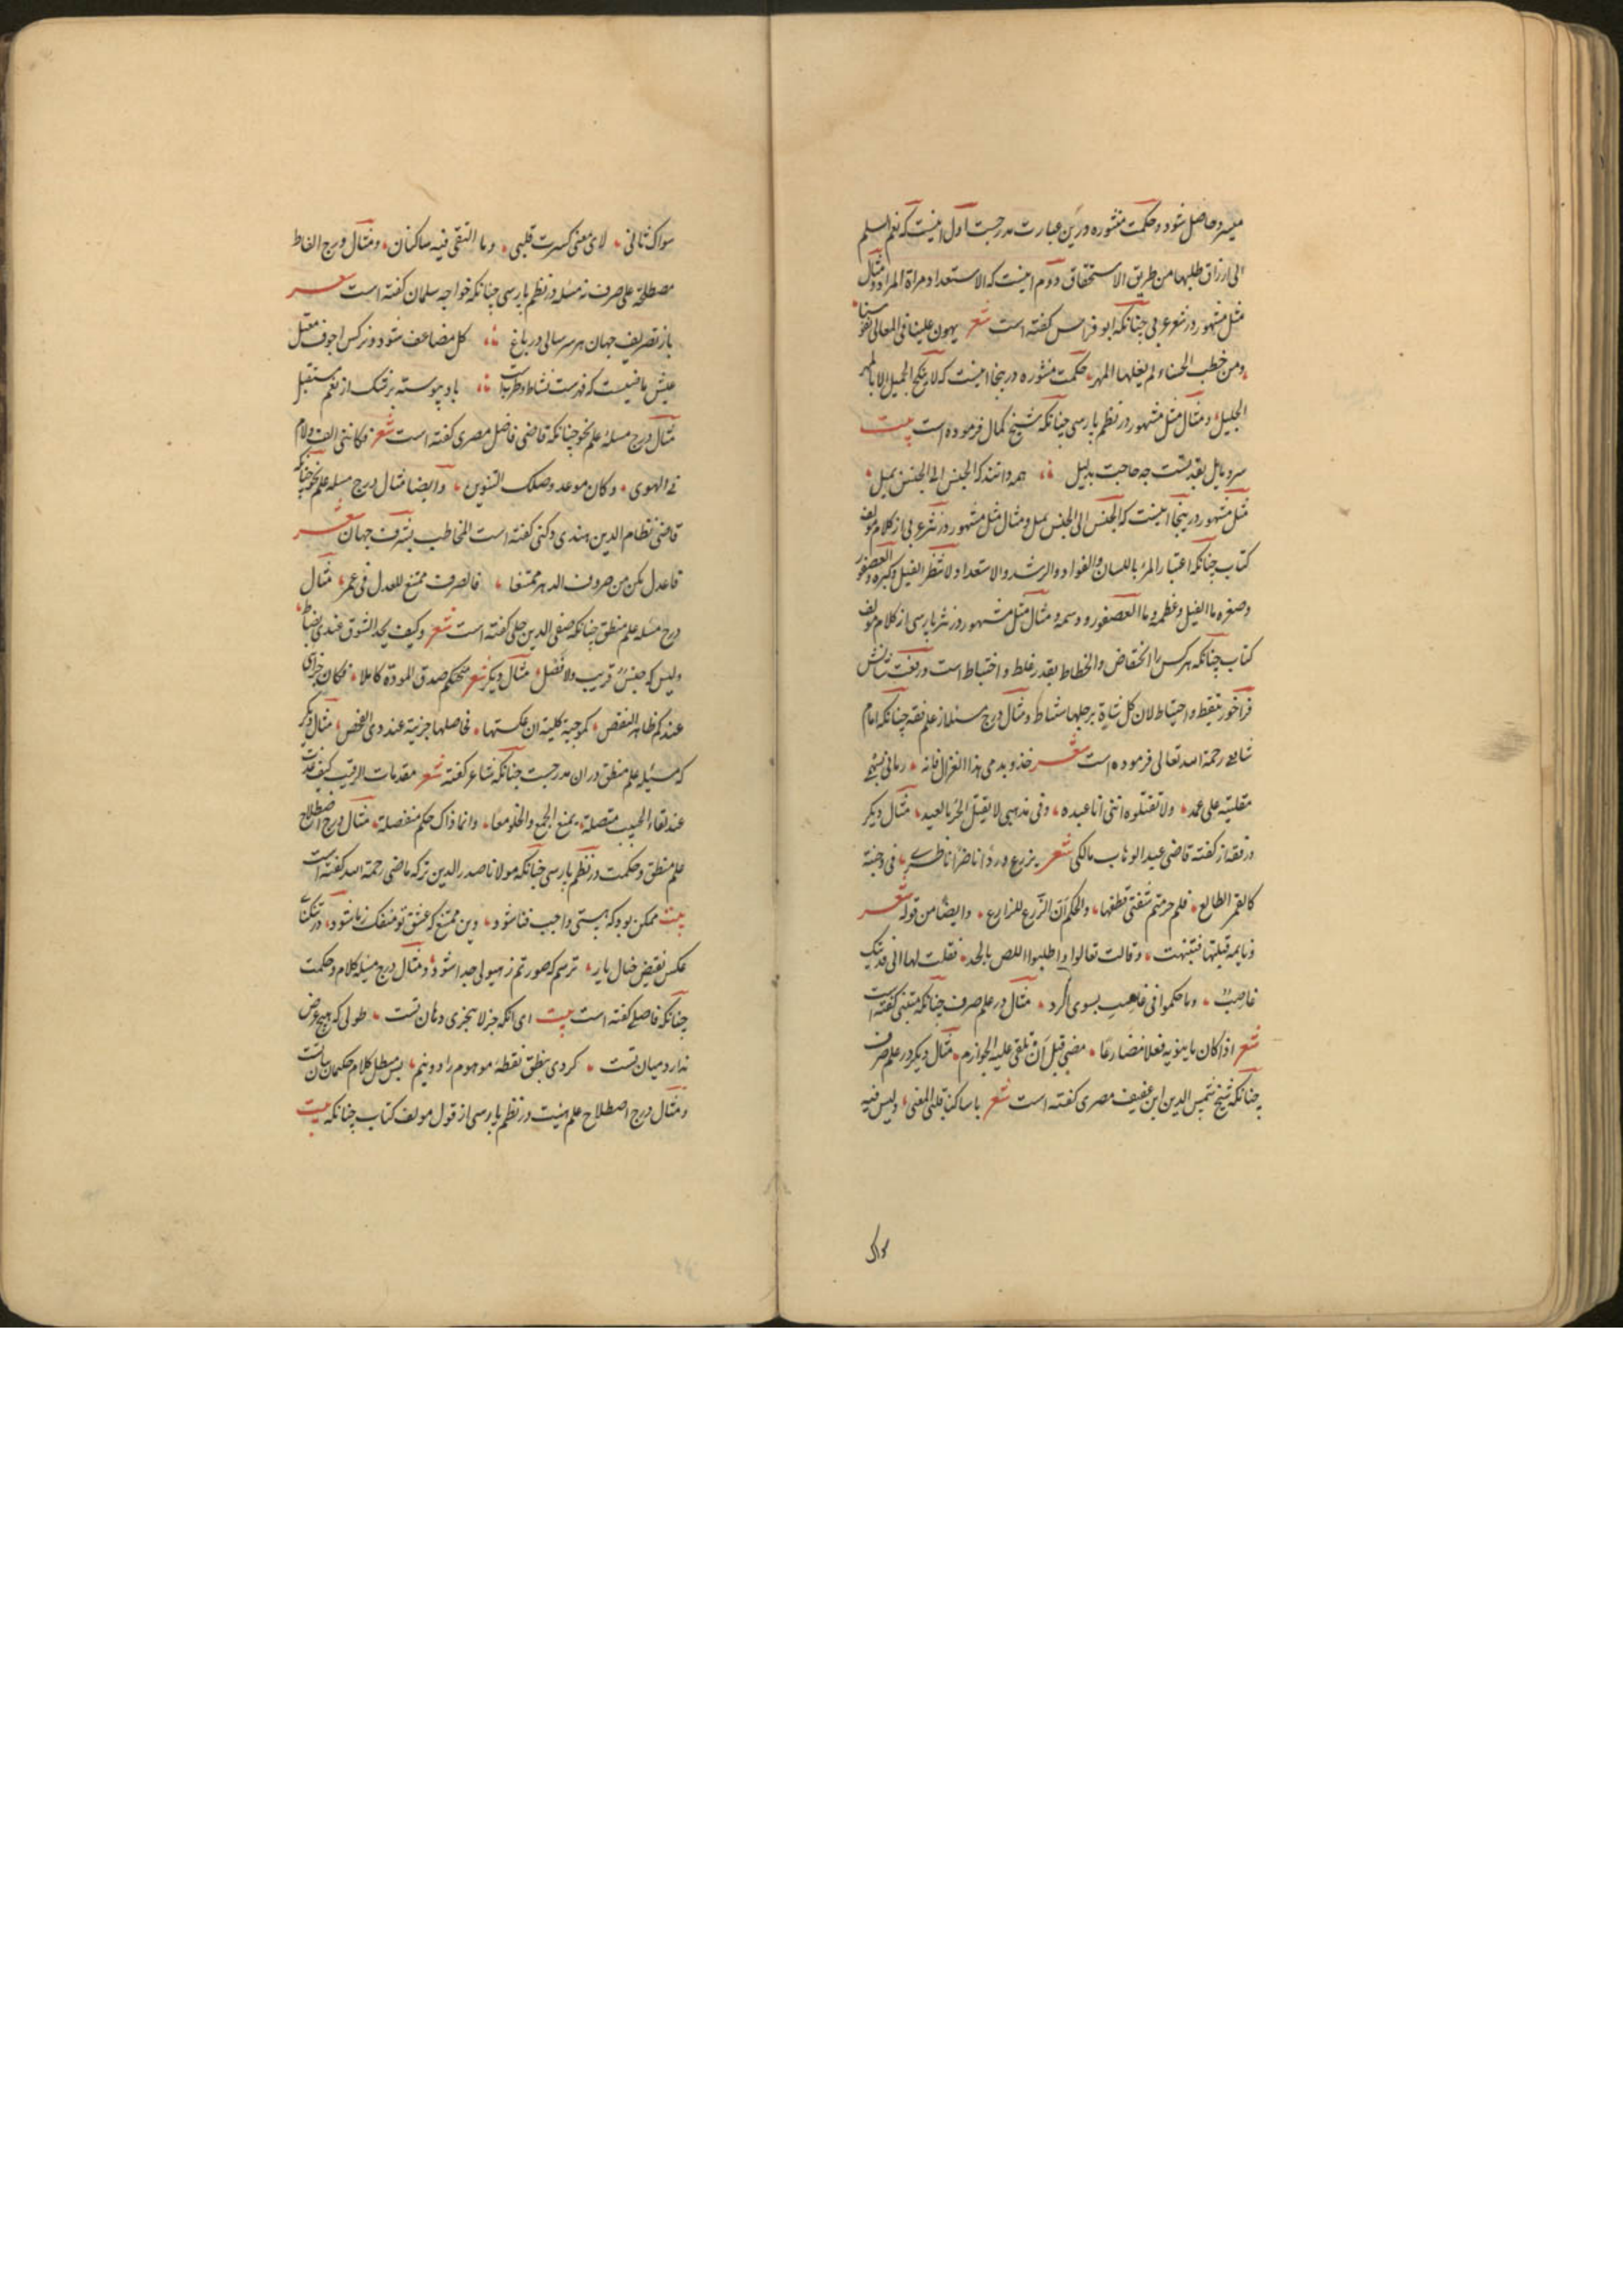 میسر و حاصل شود و حکمت منثوره درین عبارت مدرجست اول اینست که نعم السلم
الی ارزاق طلبها من طریق الاستحقاق دوم اینست که الاستعداد مراة المراد و مثال
مثل مشهور در شعر عربی چنانکه ابو فراس گفته است شعر یهون علینا فی المعالی نفوسنا
ومن خطب الحسناء لم یغلها المهر حکمت منثوره درینجا اینست که لا ینکح الجمیل الا بالمهر
الجلیل و مثال مثل مشهور در نظم پارسی چنانکه شیخ کمال فرموده است بیت
سرو مایل بقد تست چه حاجت بدلیل همه دانند که الجنس الی الجنس یمیل
مثل مشهور درینجا اینست که الجنس الی الجنس یمیل و مثال مثل مشهور در نثر عربی از کلام مولف
کتاب چنانکه اعتبار المرء باللسان والفواد والرشد والاستعداد ولا تنظر الفیل وکبره والعصفور
وصغره ما الفیل وعظمه وما العصفور ووسمه و مثال مثل مشهور در نثر پارسی از کلام مولف
کتاب چنانکه هرکس را انخفاض وانحطاط بقدر غلط و اختباط است و رفعت شانش
فراخور تیقظ و احتیاط لان کل شاة برجلها مناط و مثال درج مسئله از علم فقه چنانکه امام
شافعی رحمة الله تعالی فرموده است شعر خذوا بدمی هذا الغزال فانه رمانی بسهمی
مقلتیه علی عمد ولا تقتلوه اننی انا عبده وفی مذهبی لا یقتل الحر بالعبد مثال دیگر
در فقه از گفته قاضی عبد الوهاب مالکی شعر یزرع وردا ناضرا ناظری فی وجنة
کالقمر الطالع فلم حرمتم شفتی قطفها والحکم أن الزرع للزارع وایضا من قوله شعر
ونایمة قبلتها فتنبهت وقالت تعالوا واطلبوا اللص بالحد فقلت لها انی فدیتک
غاصب وما حکموا فی غاصب بسوی الرد مثال در علم صرف چنانکه متنبی گفته است
شعر اذا کان ما ینویه فعلا مضارعا مضی قبل أن تلقی علیه الجوازم مثال دیگر در علم صرف
چنانکه شیخ شمس الدین ابن عفیف مصری گفته است شعر یا ساکنا قلبی المعنی ولیس فیه
سواک
سواک ثانی لای معنی کسرت قلبی وما التقی فیه ساکنان و مثال درج الفاظ
مصطلحه علی صرف نه مسئله در نظم پارسی چنانکه خواجه سلمان گفته است شعر
باز تصریف جهان هر سر سالی در باغ کل مضاعف شود و نرکس اجوف معتل
عیش ماضیست که فهرست نشاط و طربست باد پیوسته بر از نعم مستقبل
مثال درج مسئله علم نحو چنانکه قاضی فاضل مصری گفته است شعر فکاننی الف ولام
فی الهوی وکان موعد وصلک التنوین وایضا مثال درج مسئله علم نحو چنانکه
قاضی نظام الدین هندی دکنی گفته است المخاطب بشرف جهان شعر
فاعدل تکن من صروف الدهر ممتنعا فالصرف ممتنع للعدل فی عمر مثال
درج مسئله علم منطق چنانکه صفی الدین حلی گفته است شعر وکیف یحد الشوق عندی بضابط
ولیس له جنس قریب ولا فصل مثال دیگر شعر منحتکم صدق المودة کاملا فکان جزای
عندکم ظاهر النقص کموجبة کلیة ان عکستها فحاصلها جزئیة عند ذی الفحص مثال دیگر
که مسئله علم منطق در ان مدرجست چنانکه شاعر گفته شعر مقدمات الرقیب کیف غدت
عند لقاء الحبیب متصلة یمنع الجمع والخلو معا وانما ذاک حکم منفصلة مثال درج اصطلاح
علم منطق و حکمت در نظم پارسی چنانکه مولانا صدر الدین ترکه ماضی رحمة الله گفته است
بیت ممکن بود که هستی واجب فنا شود وین ممتنع که عشق تو منفک زما شود در تنکنای
عکس نقیض خیال یار ترسم که صورتم زهیولی جدا شود و مثال درج مسئله کلام و حکمت
چنانکه فاضلی گفته است بیت ای انکه جزء لا یتجزی دهان تست طولی که هیچ عرض
ندارد میان تست کردی بنطق نقطه موهوم را دونیم پس مبطل کلام حکیمان بیان تست
و مثال درج اصطلاح علم هیئت در نظم پارسی از قول مولف کتاب چنانکه بیت